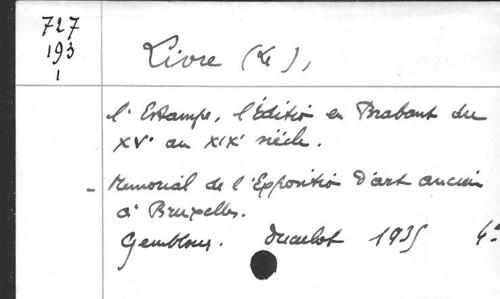 727
193
1
Livre (Le),
l'Estampe, l'Édition en Brabant du
XVe au XIXe siècle.
- Memorial de l'Exposition d'art ancien
à Bruxelles.
Gembloux. Duculot 1935 4°